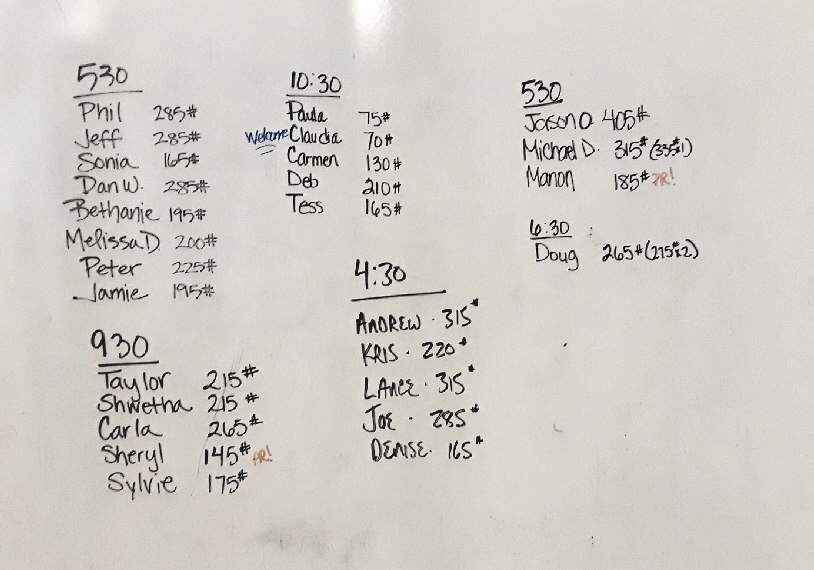 530
Phil 285#
Jeff 285#
Sonia 165#
Dan W. 285#
Bethanie 195#
Melissa D 200#
Peter 225#
Jamie 195#
930
Taylor 215#
Shwetha 215#
Carla 265#
Sheryl 145# PR!
Sylvie 175#
10:30
Paula 75#
Welcome Claudia 70#
Carmen 130#
Deb 210#
Tess 165#
4:30
ANDREW · 315#
KRIS · 220#
LANCE · 315#
JOE · 285#
DENISE · 165#
530
Jason O 405#
Michael D. 315# (335#x1)
Manon 185# PR!
6:30 :
Doug 265# (275#x2)